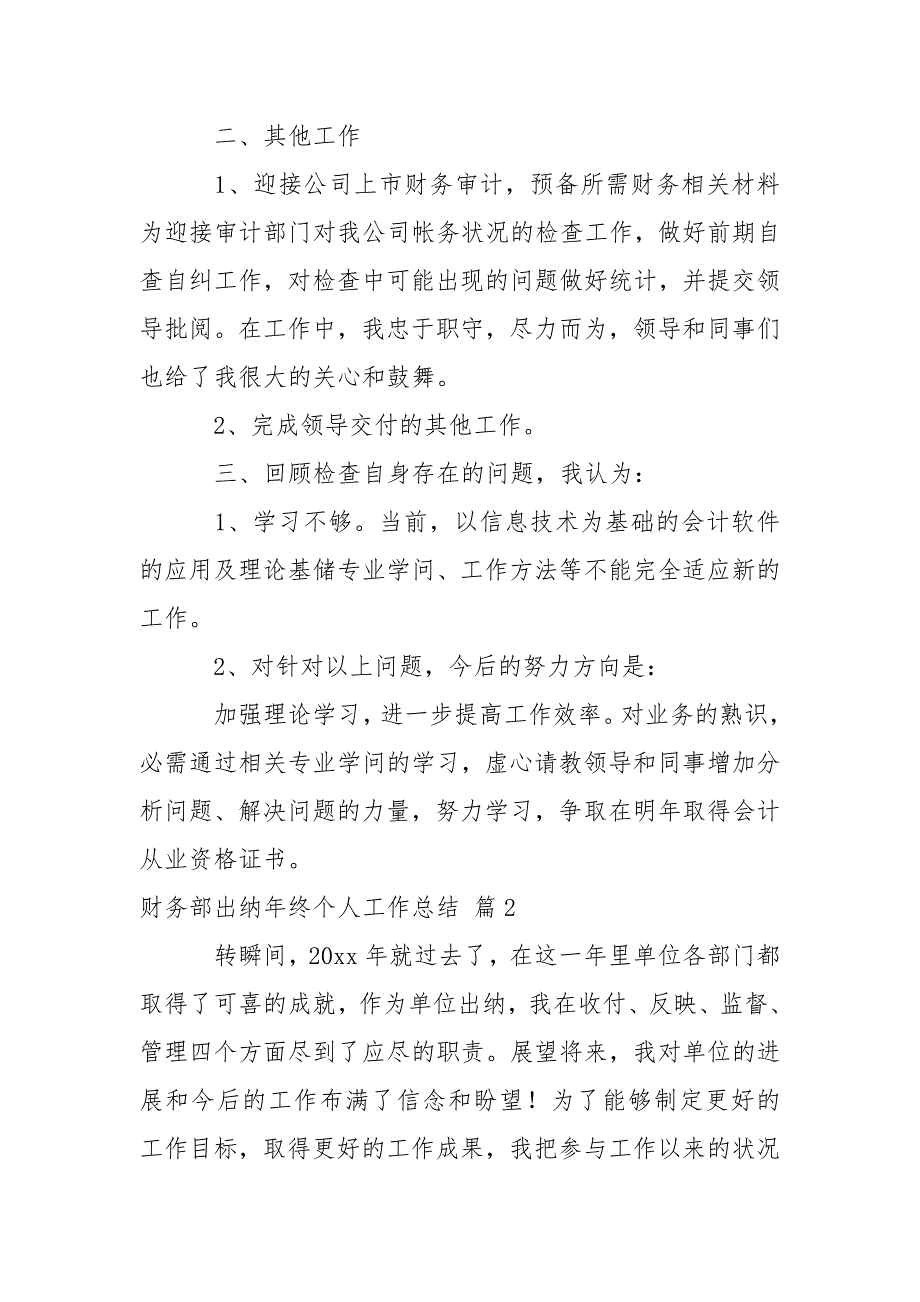 二、其他工作
1、迎接公司上市财务审计，预备所需财务相关材料
为迎接审计部门对我公司帐务状况的检查工作，做好前期自
查自纠工作，对检查中可能出现的问题做好统计，并提交领
导批阅。在工作中，我忠于职守，尽力而为，领导和同事们
也给了我很大的关心和鼓舞。
2、完成领导交付的其他工作。
三、回顾检查自身存在的问题，我认为：
1、学习不够。当前，以信息技术为基础的会计软件
的应用及理论基储专业学问、工作方法等不能完全适应新的
工作。
2、对针对以上问题，今后的努力方向是：
加强理论学习，进一步提高工作效率。对业务的熟识，
必需通过相关专业学问的学习，虚心请教领导和同事增加分
析问题、解决问题的力量，努力学习，争取在明年取得会计
从业资格证书。
财务部出纳年终个人工作总结 篇2
转瞬间，20xx 年就过去了，在这一年里单位各部门都
取得了可喜的成就，作为单位出纳，我在收付、反映、监督、
管理四个方面尽到了应尽的职责。展望将来，我对单位的进
展和今后的工作布满了信念和盼望！为了能够制定更好的
工作目标，取得更好的工作成果，我把参与工作以来的状况